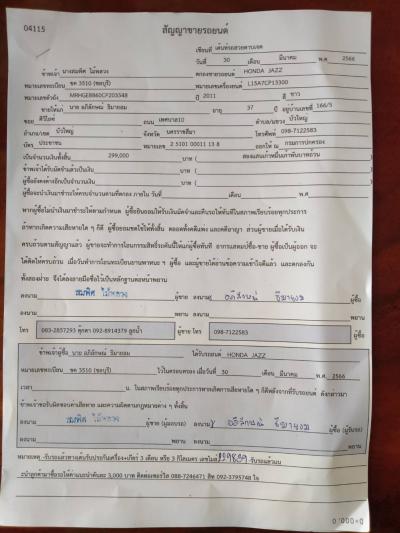 04115
สัญญาขายรถยนต์
เขียนที่ เต็นท์รถสวยตามเจต
วันที่ 30 เดือน มีนาคม พ.ศ. 2566
ข้าพเจ้า นางสมพิศ ไม้หลวง ตกลงขายรถยนต์ HONDA JAZZ
หมายเลขทะเบียน ขค 3510 (ชลบุรี) หมายเลขเครื่องยนต์ L15A7CP13300
หมายเลขตัวถัง MRHGE8860CP203548 ปี 2011 สี ขาว
ขายให้แก่ นาย อภิลักษณ์ ธิมายอม อายุ 37 ปี อยู่บ้านเลขที่ 166/5
ซอย ศิริโชค ถนน เทศบาล10 ตำบล/แขวง บัวใหญ่
อำเภอ/เขต บัวใหญ่ จังหวัด นครราชสีมา โทรศัพท์ 098-7122583
บัตร ประชาชน หมายเลข 2 5101 00011 13 8 ออกให้ ณ กรมการปกครอง
เป็นจำนวนเงินทั้งสิ้น 299,000 บาท ( สองแสนเก้าหมื่นเก้าพันบาทถ้วน
ข้าพเจ้าได้รับมัดจำแล้วเป็นเงิน บาท (
ผู้ซื้อยังคงค้างอีกเป็นจำนวนเงิน บาท (
ผู้ซื้อจะนำเงินมาชำระให้ครบจำนวนตามที่ตกลง ภายใน วันที่ เดือน พ.ศ.
หากผู้ซื้อไม่นำเงินมาชำระให้ตามกำหนด ผู้ซื้อยินยอมให้ริบเงินมัดจำและคืนรถให้ทันทีในสภาพเรียบร้อยทุกประการ
ถ้าหากเกิดความเสียหายใด ๆ ก็ดี ผู้ซื้อยอมชดใช้ให้ทั้งสิ้น ตลอดทั้งคดีแพ่ง และคดีอาญา ส่วนผู้ขายเมื่อได้รับเงิน
ครบถ้วนตามสัญญาแล้ว ผู้ขายจะทำการโอนกรรมสิทธิ์รถคันนี้ให้แก่ผู้ซื้อทันที อากรแสตมป์ซื้อ-ขาย ผู้ซื้อเป็นผู้ออก จะ
ได้คิดให้ครบถ้วน เมื่อวันทำการโอนทะเบียนยานพาหนะ ฯ ผู้ซื้อ และผู้ขายได้อ่านข้อความเข้าใจดีแล้ว และตกลงกัน
ทั้งสองฝ่าย จึงได้ลงลายมือชื่อไว้เป็นหลักฐานต่อหน้าพยาน
ลงนาม สมพิศ ไม้หลวง ผู้ขาย ลงนาม อภิลักษณ์ ธิมายอม ผู้ซื้อ
ลงนาม พยาน ลงนาม พยาน
ผู้ขาย โทร 083-2857293 ตุ๊กตา 092-8914379 ลูกน้ำ ผู้ซื้อ โทร 098-7122583 ผู้ซื้อ
ข้าพเจ้าผู้ซื้อ นาย อภิลักษณ์ ธิมายอม ได้รับรถยนต์ HONDA JAZZ
หมายเลขทะเบียน ขค 3510 (ชลบุรี) ไว้ในครอบครอง เมื่อวันที่ 30 เดือน มีนาคม พ.ศ. 2566
เวลา น. ในสภาพเรียบร้อยทุกประการหากเกิดการเสียหายใด ๆ ก็ดีหลังจากที่รับรถยนต์ ดังกล่าวมา
ข้าพเจ้าขอรับผิดชอบค่าเสียหาย และความผิดตามกฎหมายต่าง ๆ ทั้งสิ้น
ลงนาม สมพิศ ไม้หลวง ผู้ขาย (ผู้มอบรถ) ลงนาม อภิลักษณ์ ธิมายอม ผู้ซื้อ (ผู้รับรถ)
ลงนาม พยาน ลงนาม พยาน